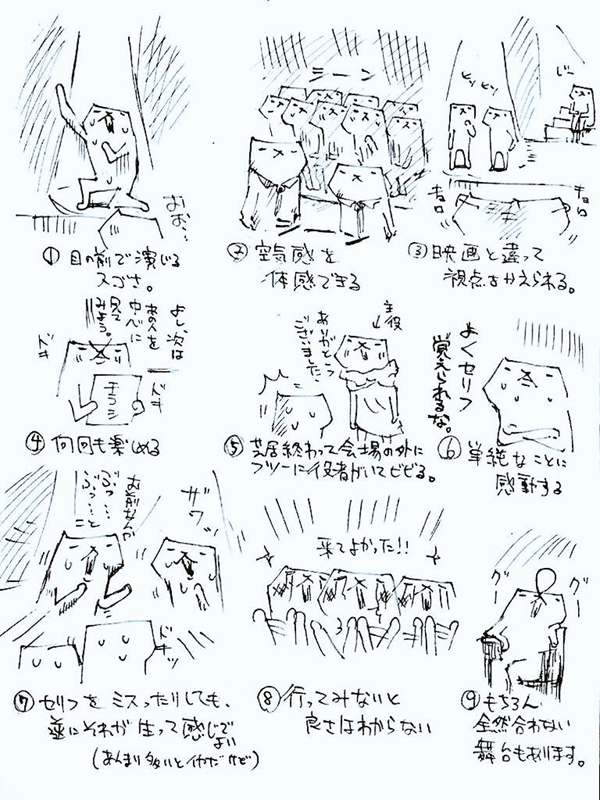 おお…
①目の前で演じる
スゴさ。
シーン
②空気感を
体感できる
ヒソ
ヒソ
じー
キョロ
キョロ
③映画と違って
視点をかえられる。
よし、次は
あの人を
中心に
見て
みよう。
ドキ
ドキ
チラシ
④何回も楽しめる
主役
ありがとう
ございました
⑤芝居終わって会場の外に
フツーに役者がいてビビる。
よくセリフ
覚えられるな。
⑥単純なことに
感動する
お前なんか
ぶっ…
ぶっ…こと
ザワッ
ドキッ
⑦セリフをミスったりしても、
逆にそれが生って感じで
よい
(あんまり多いとイヤだけど)
来てよかった!!
⑧行ってみないと
良さはわからない
グー
グー
⑨もちろん
全然合わない
舞台もあります。